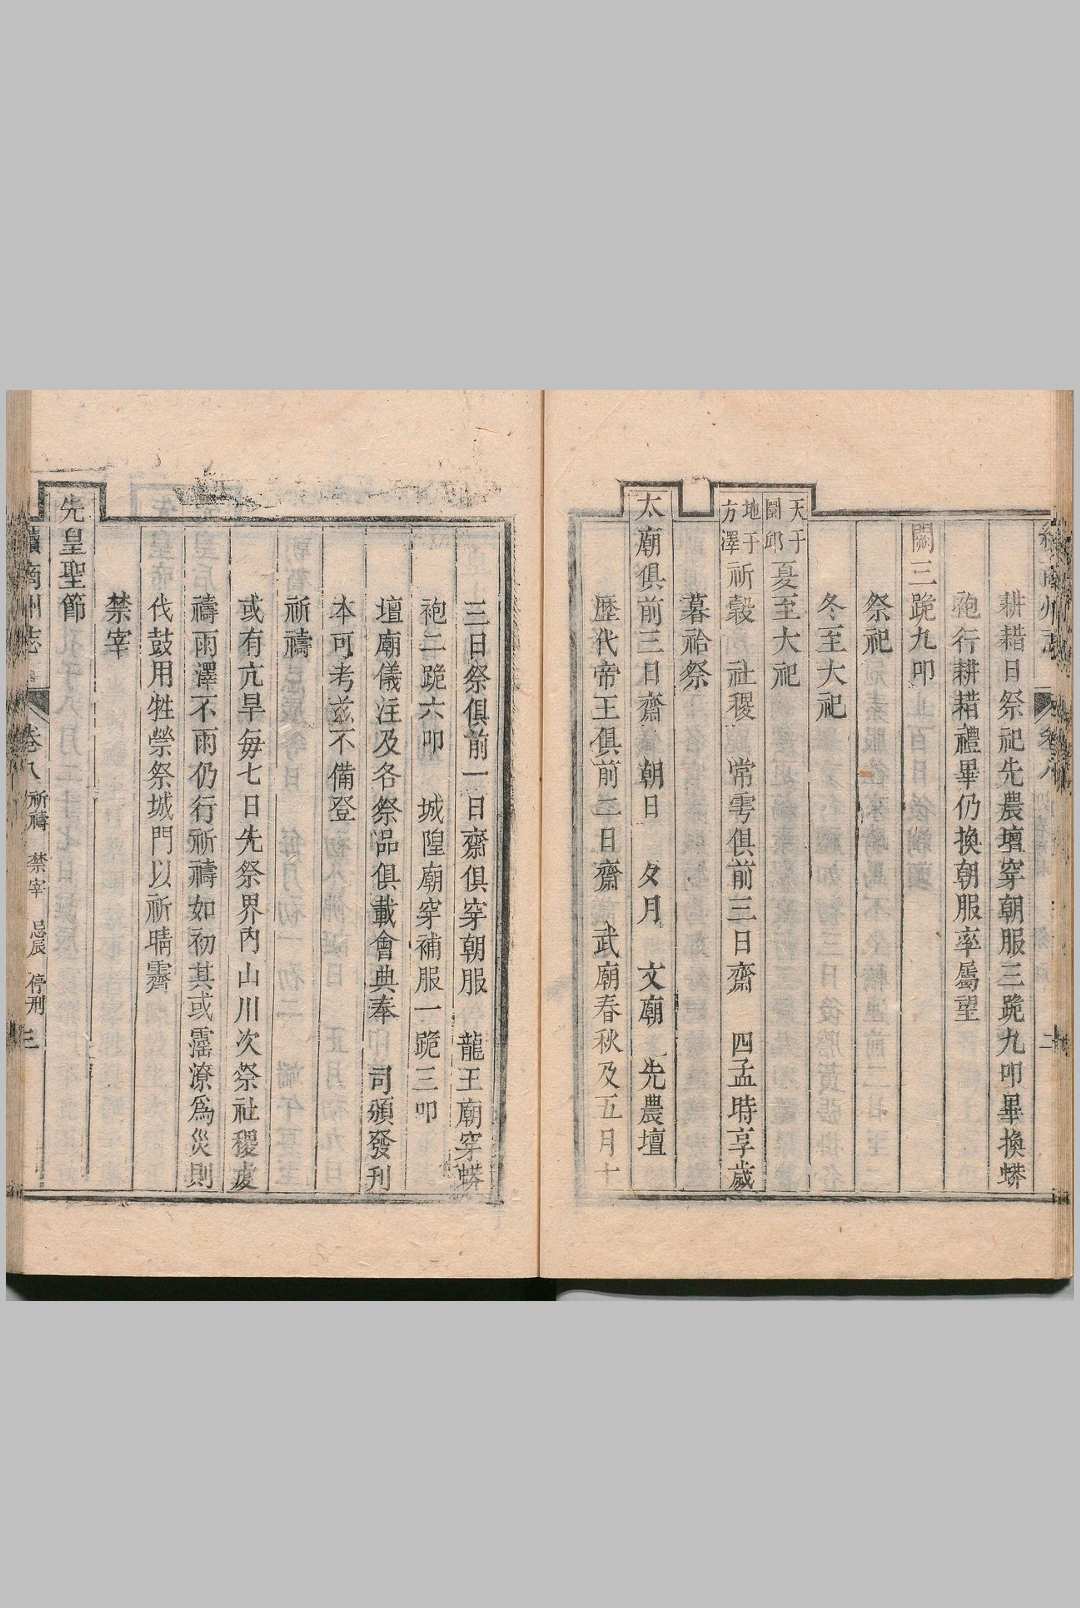 耕耤日祭祀先農壇穿朝服三跪九叩畢換蟒
袍行耕耤禮畢仍換朝服率屬望
闕三跪九叩
祭祀
冬至大祀
天于圜邱夏至大祀
地于方澤祈穀 社稷 常雩俱前三日齋 四孟時享歲
暮祫祭
太廟俱前三日齋 朝日 夕月 文廟 先農壇
歷代帝王俱前二日齋 武廟春秋及五月十
三日祭俱前一日齋俱穿朝服 龍王廟穿蟒
袍二跪六叩 城隍廟穿補服一跪三叩
壇廟儀注及各祭品俱載會典奉 司頒發刊
本可考兹不備登
祈禱
或有亢旱每七日先祭界內山川次祭社稷虔
禱雨澤不雨仍行祈禱如初其或霪潦為災則
伐鼓用牲禜祭城門以祈晴霽
禁宰
先皇聖節
續南州志 卷八 祈禱 禁宰 忌辰 停刑 三